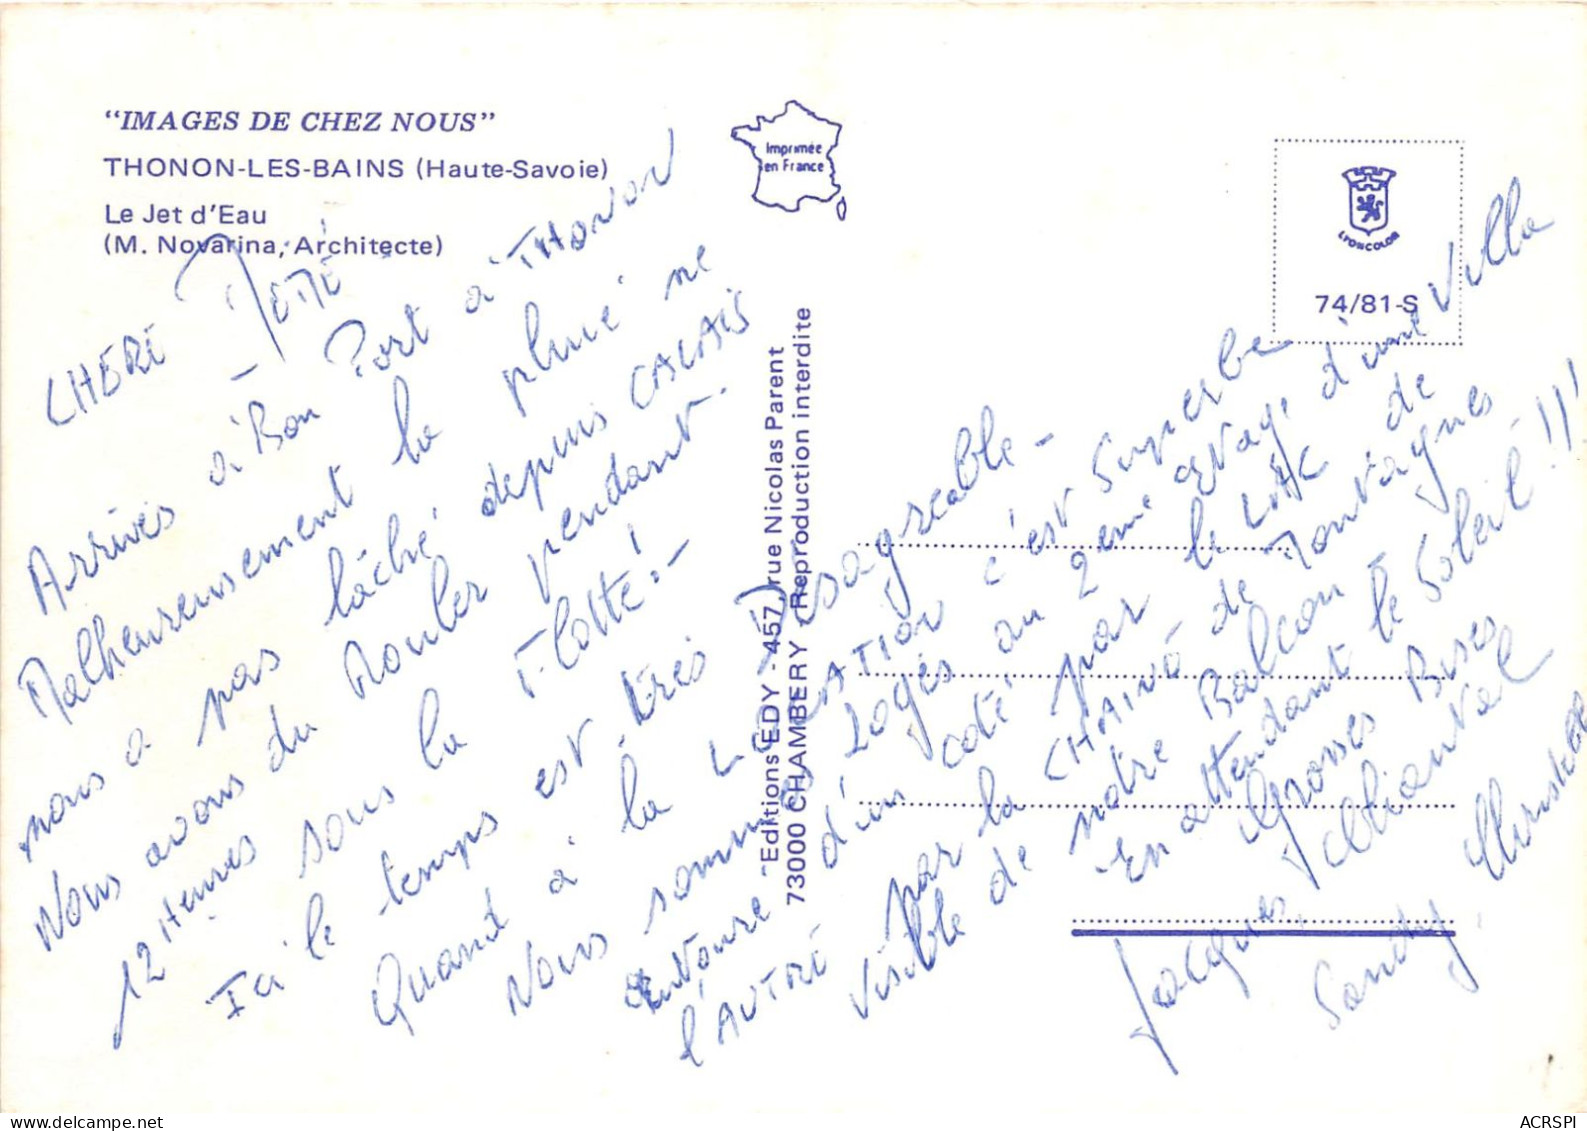 "IMAGES DE CHEZ NOUS"
THONON-LES-BAINS (Haute-Savoie)
Le Jet d'Eau
(M. Novarina, Architecte)
Imprimée
en France
LYONCOLOR
74/81-S
Editions EDY - 457, rue Nicolas Parent
73000 CHAMBERY Reproduction interdite
CHERE
Arrivés à Bon Port à THONON
Malheureusement la pluie ne
nous a pas lâché depuis CALAIS
Nous avons du Rouler pendant
12 Heures sous la Flotte! -
Ici le temps est très Desagreable -
Quand à la LOCATION c'est Superbe
Nous sommes Logés au 2eme etage d'une Villa
entouré d'un coté par le LAK
l'AUTRE par la CHAINE de Montagnes
Visible de notre Balcon
En attendant le Soleil !!!
Grosses Bises
Jacques
Sandy, Christelle
ACRSPI